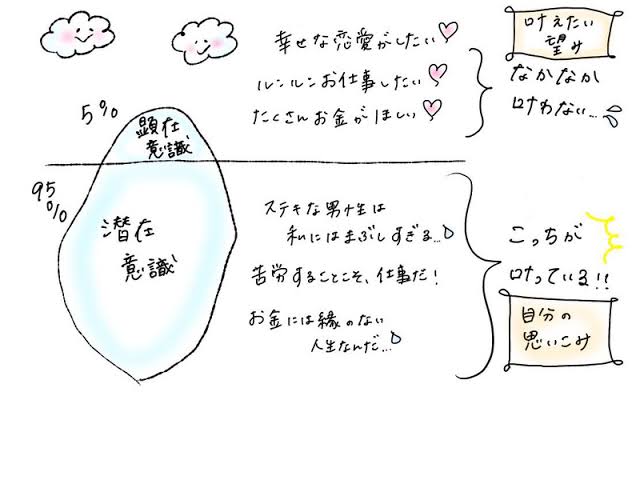 幸せな恋愛がしたい
ルンルンお仕事したい
たくさんお金がほしい
叶えたい
望み
なかなか
叶わない…
5%
顕在
意識
95%
潜在
意識
ステキな男性は
私にはまぶしすぎる…
苦労することこそ、仕事だ!
お金には縁のない
人生なんだ…
こっちが
叶っている!!
自分の
思いこみ